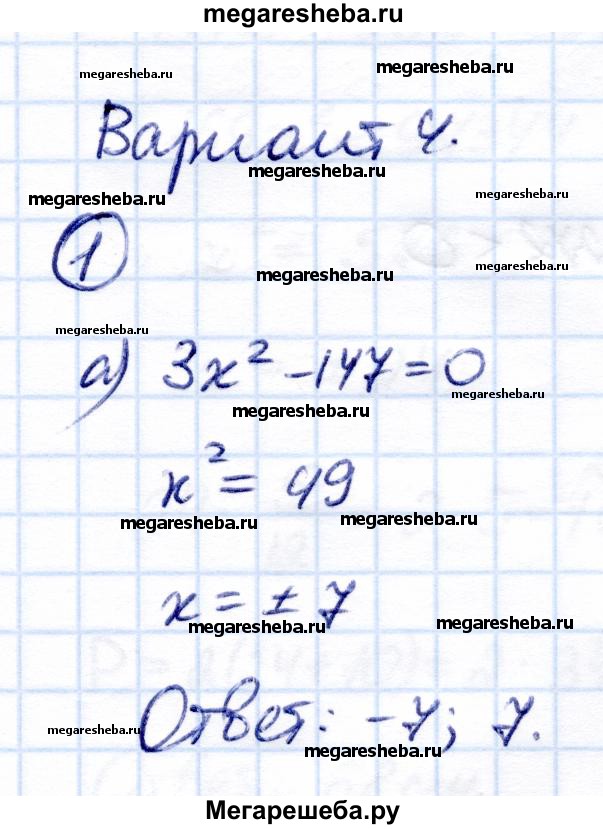 megaresheba.ru
megaresheba.ru megaresheba.ru
Вариант 4.
megaresheba.ru
megaresheba.ru megaresheba.ru
1
megaresheba.ru megaresheba.ru
megaresheba.ru
а) 3x² - 147 = 0
megaresheba.ru megaresheba.ru
x² = 49
megaresheba.ru megaresheba.ru
x = ± 7
megaresheba.ru megaresheba.ru
Ответ: -7; 7.
megaresheba.ru megaresheba.ru
Мегарешеба.ру